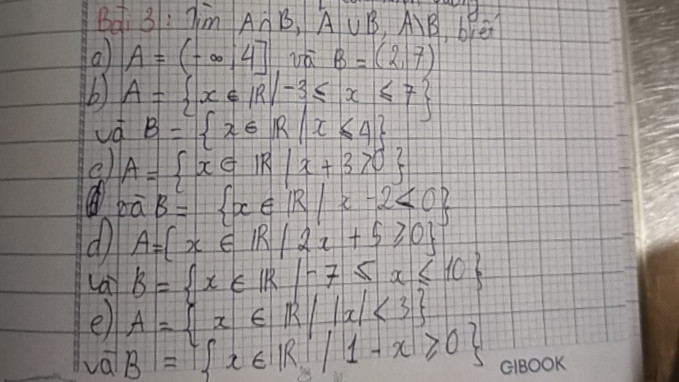 Bài 3: Tìm A∩B, A∪B, A\B, biết
a) A = (-∞; 4] và B = (2; 7)
b) A = {x ∈ ℝ | -3 ≤ x ≤ 7}
và B = {x ∈ ℝ | x ≤ 4}
c) A = {x ∈ ℝ | x + 3 > 0}
và B = {x ∈ ℝ | x - 2 < 0}
d) A = {x ∈ ℝ | 2x + 5 ≥ 0}
và B = {x ∈ ℝ | -7 ≤ x ≤ 10}
e) A = {x ∈ ℝ | |x| < 3}
và B = {x ∈ ℝ | 1 - x ≥ 0}
GIBOOK